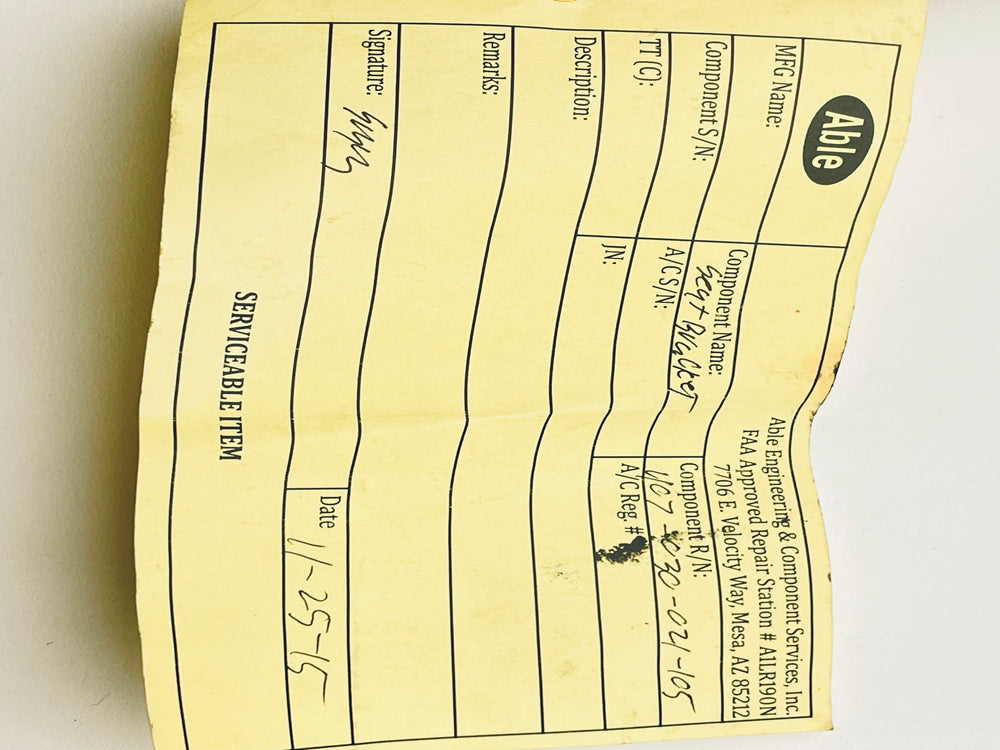 Able
Able Engineering & Component Services, Inc.
FAA Approved Repair Station # A1LR190N
7706 E. Velocity Way, Mesa, AZ 85212
MFG Name:
Component Name:
Seat Bracket
Component R/N:
407-030-021-105
Component S/N:
A/C S/N:
A/C Reg. #
TT (C):
JN:
Description:
Remarks:
Signature:
Date 11-25-15
SERVICEABLE ITEM